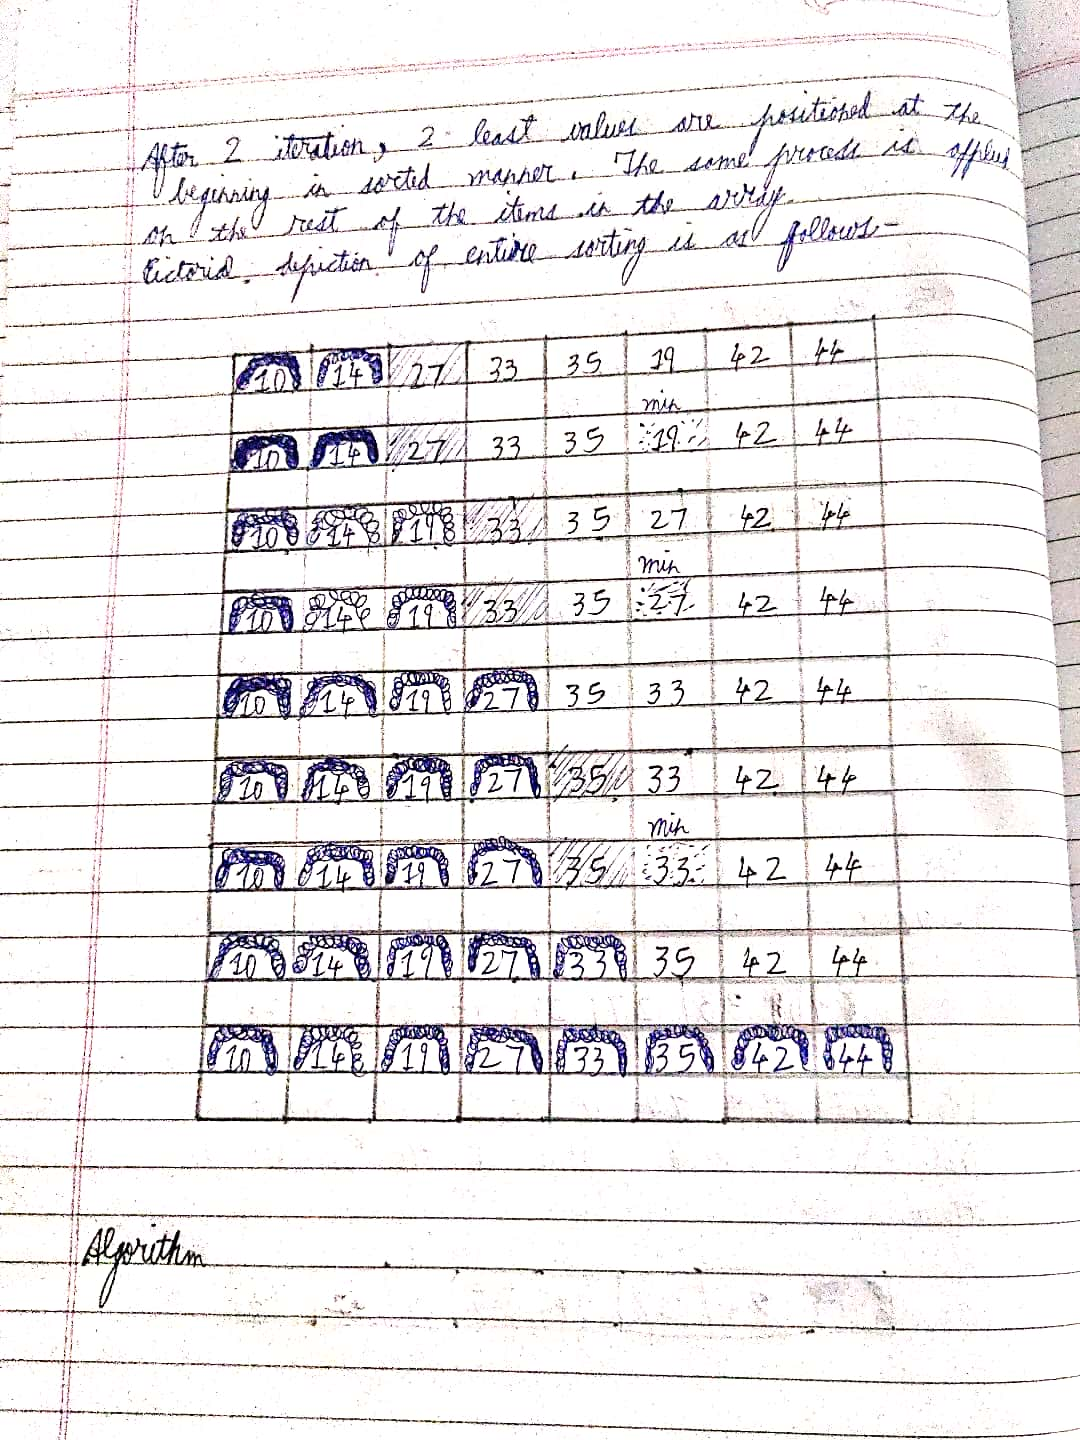 After 2 iteration, 2 least values are positioned at the
beginning in sorted manner. The same process is applied
on the rest of the items in the array.
Pictorial depiction of entire sorting is as follows-
10 14 27 33 35 19 42 44
min
10 14 27 33 35 19 42 44
10 14 19 33 35 27 42 44
min
10 14 19 33 35 27 42 44
10 14 19 27 35 33 42 44
10 14 19 27 35 33 42 44
min
10 14 19 27 35 33 42 44
10 14 19 27 33 35 42 44
10 14 19 27 33 35 42 44
Algorithm